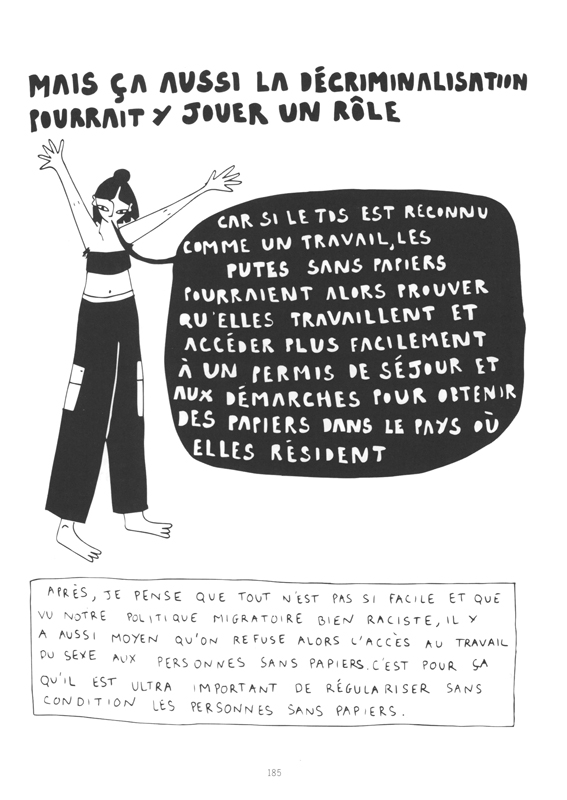 MAIS ÇA AUSSI LA DÉCRIMINALISATION
POURRAIT Y JOUER UN RÔLE
CAR SI LE TDS EST RECONNU
COMME UN TRAVAIL, LES
PUTES SANS PAPIERS
POURRAIENT ALORS PROUVER
QU'ELLES TRAVAILLENT ET
ACCÉDER PLUS FACILEMENT
À UN PERMIS DE SÉJOUR ET
AUX DÉMARCHES POUR OBTENIR
DES PAPIERS DANS LE PAYS OÙ
ELLES RÉSIDENT
APRÈS, JE PENSE QUE TOUT N'EST PAS SI FACILE ET QUE
VU NOTRE POLITIQUE MIGRATOIRE BIEN RACISTE, IL Y
A AUSSI MOYEN QU'ON REFUSE ALORS L'ACCÈS AU TRAVAIL
DU SEXE AUX PERSONNES SANS PAPIERS. C'EST POUR ÇA
QU'IL EST ULTRA IMPORTANT DE RÉGULARISER SANS
CONDITION LES PERSONNES SANS PAPIERS.
185